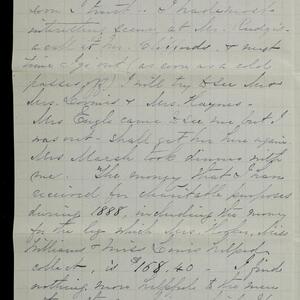 soon I trust. I had a most
interesting scene at Mr. Rudgis
a call at Mr. Clifford's & next
time I go out (as soon as a cold
passes off) I will try & see Mrs
Mrs. Loomis & Mrs. Haynes.
Mrs Engle came to see me but I
was out - shall get her here again.
Mrs Marsh took dinner with
me. The money that I have
received for charitable purposes
during 1888, including the money
in the box which Mrs. Miss
Williams & Miss Ennis helped
collect, is $168.40 - I find
nothing more helpful to the men